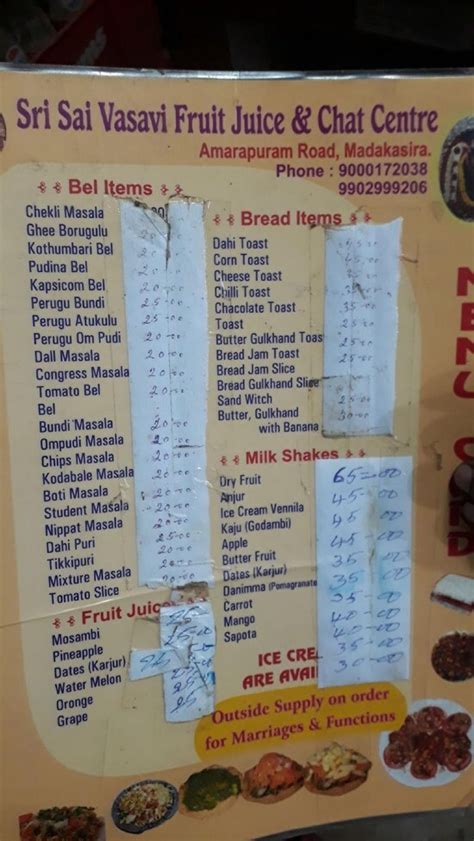 Sri Sai Vasavi Fruit Juice & Chat Centre
Amarapuram Road, Madakasira.
Phone : 9000172038
9902999206
Bel Items
Chekli Masala
Ghee Borugulu 20.00
Kothumbari Bel 20.00
Pudina Bel 20.00
Kapsicom Bel 20.00
Perugu Bundi 25.00
Perugu Atukulu 25.00
Perugu Om Pudi
Dall Masala 20.00
Congress Masala 20.00
Tomato Bel 20.00
Bel
Bundi Masala 20.00
Ompudi Masala 20.00
Chips Masala 20.00
Kodabale Masala 20.00
Boti Masala 20.00
Student Masala 20.00
Nippat Masala 20.00
Dahi Puri 25.00
Tikkipuri 20.00
Mixture Masala 20.00
Tomato Slice 20.00
Fruit Juice
Mosambi
Pineapple
Dates (Karjur)
Water Melon
Oronge
Grape
Bread Items
Dahi Toast 45.00
Corn Toast
Cheese Toast
Chilli Toast
Chacolate Toast 35.00
Toast 25.00
Butter Gulkhand Toast
Bread Jam Toast 25.00
Bread Jam Slice
Bread Gulkhand Slice
Sand Witch 25.00
Butter, Gulkhand 30.00
with Banana
Milk Shakes
Dry Fruit 65-00
Anjur 45-00
Ice Cream Vennila 45-00
Kaju (Godambi) 45-00
Apple 45-00
Butter Fruit 35-00
Dates (Karjur) 35-00
Danimma (Pomagranate 35-00
Carrot 40-00
Mango 40-00
Sapota 35-00
30-00
ICE CRE
ARE AVAI
Outside Supply on order
for Marriages & Functions
MENU